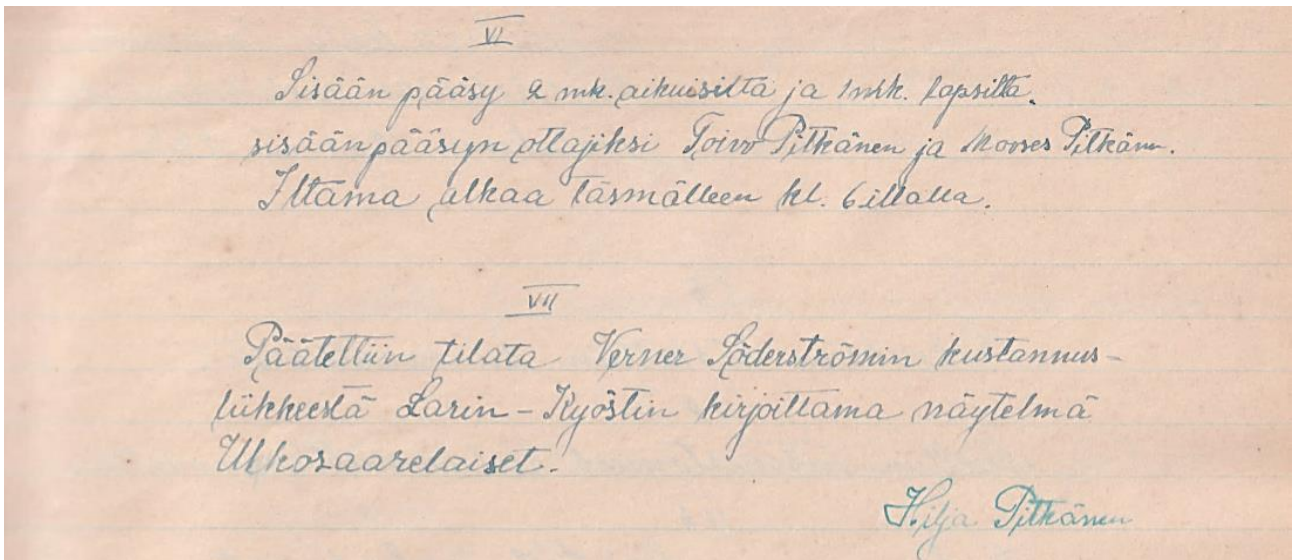 VI
Sisään pääsy 2 mk. aikuisilta ja 1 mk. lapsilta.
sisäänpääsyn ottajiksi Toivo Pitkänen ja Mooses Pitkänen.
Iltama alkaa täsmälleen kl. 6 illalla.
VII
Päätettiin tilata Verner Söderströmin kustannus-
liikkeestä Larin-Kyöstin kirjoittama näytelmä
Ulkosaarelaiset.
Hilja Pitkänen